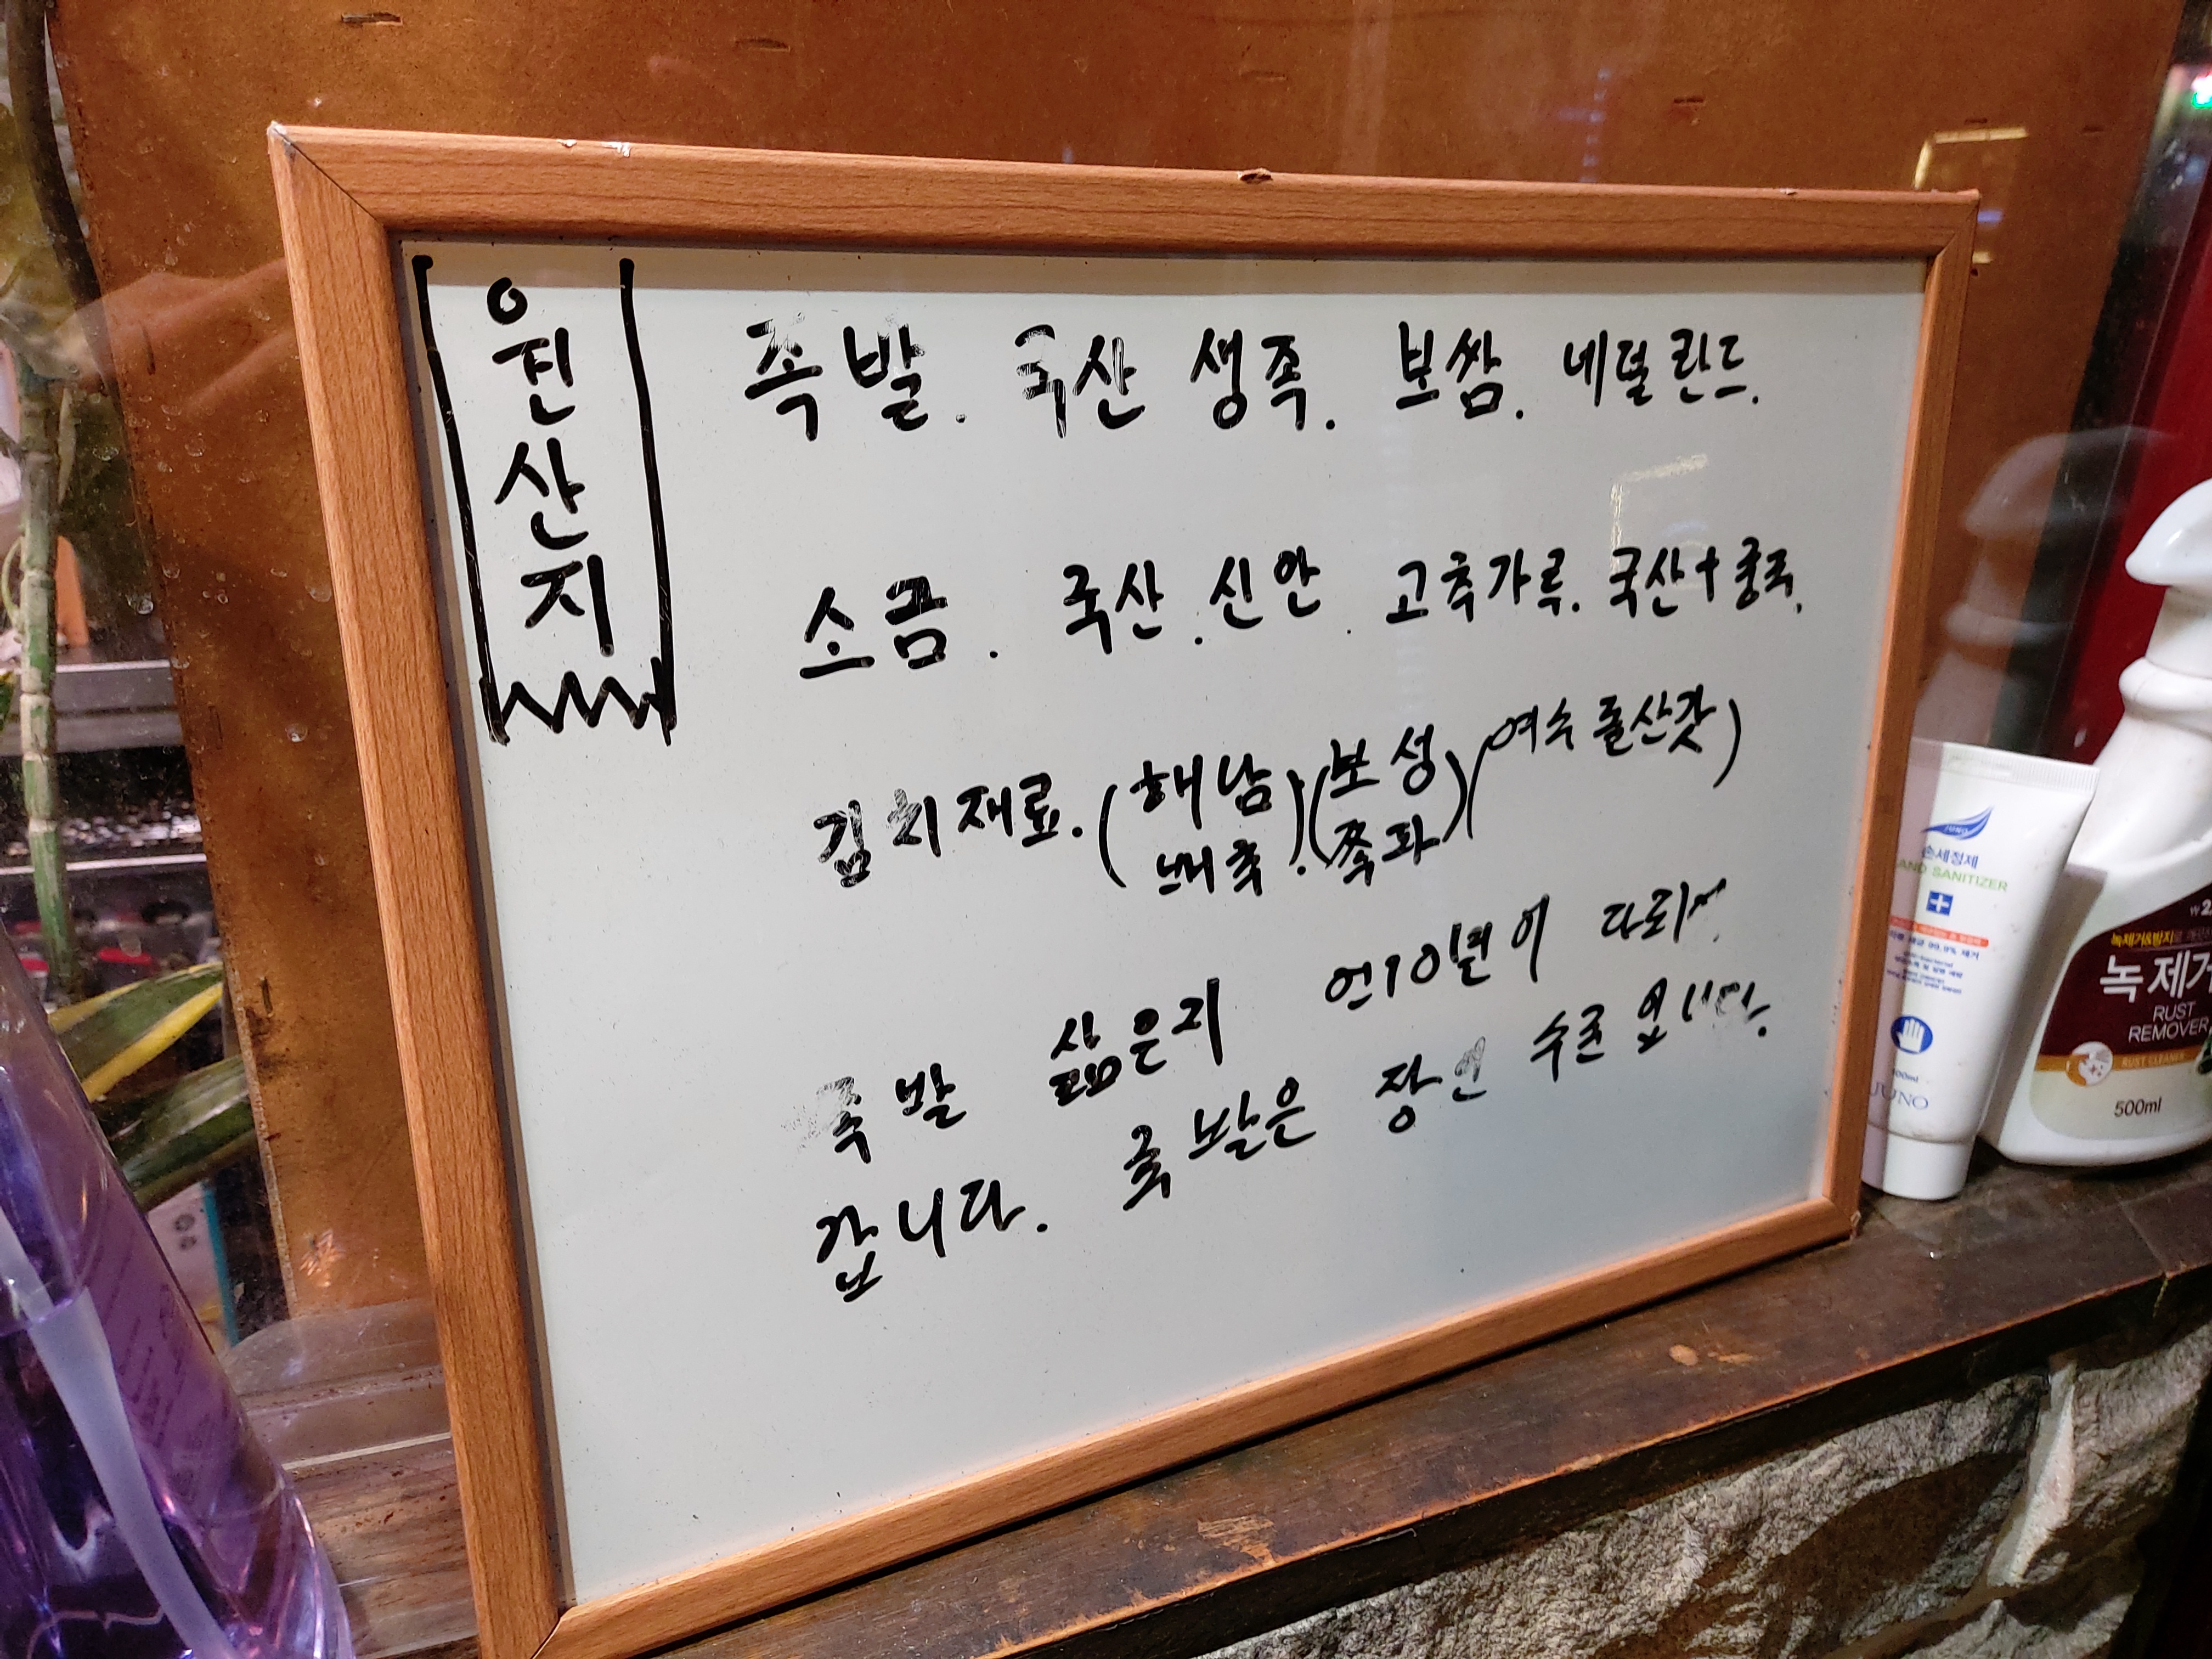 원산지
족발. 국산 생족. 보쌈. 네덜란드.
소금. 국산. 신안. 고춧가루. 국산+중국.
김치재료. (해남 배추).(보성 쪽파)(여수 돌산갓)
족발 삶은지 언10년이 다되서
갑니다. 족발은 장인 수준 입니다.
JUNO
손세정제
HAND SANITIZER
JUNO
녹제거&방지
녹 제거
RUST
REMOVER
RUST CLEANER
500ml